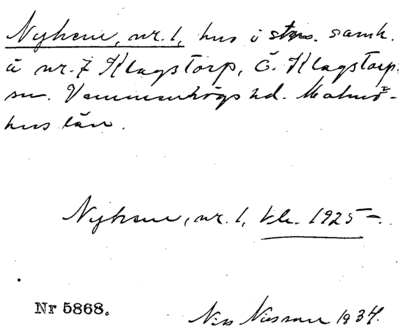 Nyhem, nr. 1, hus i stns. samh.
å nr. 7 Klagstorp, Ö. Klagstorps
sn. Vemmenhögs hd. Malmö-
hus län.
Nyhem, nr. 1, kk. 1925 –.
Nr 5868.
Nils Nilsson 1934.